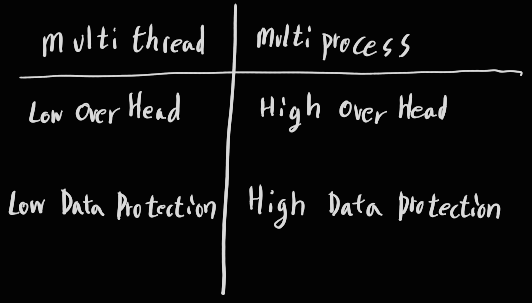 multi thread
multi process
Low Over Head
High Over Head
Low Data Protection
High Data protection